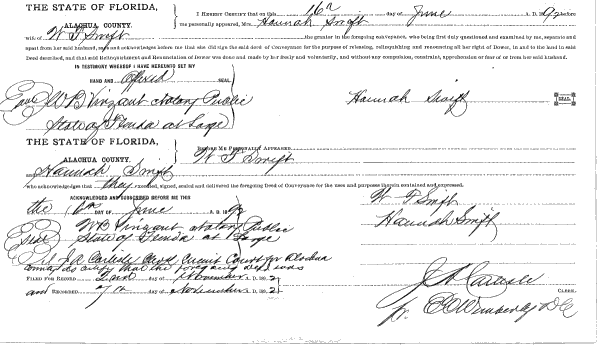 THE STATE OF FLORIDA,
ALACHUA COUNTY.
I HEREBY CERTIFY that on this 16th day of June A. D. 1892 before
me personally appeared, Mrs. Hannah Swift
wife of W F Swift the grantor in the foregoing conveyance, who being first duly questioned and examined by me, separate and
apart from her said husband, says and acknowledges before me that she did sign the said deed of Conveyance for the purpose of releasing, relinquishing and renouncing all her right of Dower, in and to the land in said
Deed described, and that said Relinquishment and Renunciation of Dower was done and made by her freely and voluntarily, and without any compulsion, constraint, apprehension or fear of or from her said husband.
IN TESTIMONY WHEREOF I HAVE HEREUNTO SET MY
HAND AND affixed SEAL
W B Vinzant Notary Public
State of Florida at Large
Hannah Swift
SEAL
THE STATE OF FLORIDA,
ALACHUA COUNTY.
BEFORE ME PERSONALLY APPEARED
W F Swift
Hannah Swift
who acknowledges that they executed, signed, sealed and delivered the foregoing Deed of Conveyance for the uses and purposes therein contained and expressed.
ACKNOWLEDGED AND SUBSCRIBED BEFORE ME THIS
the 16th DAY OF June A. D. 1892
W B Vinzant Notary Public
State of Florida at Large
W F Swift
Hannah Swift
I, J. A. Carlisle Clerk Circuit Court for Alachua
County do certify that the foregoing Deed was
FILED FOR RECORD day of November A. D. 1892
and RECORDED 7th day of November A. D. 1892
J A Carlisle CLERK.
pr. E O Wimberly D C